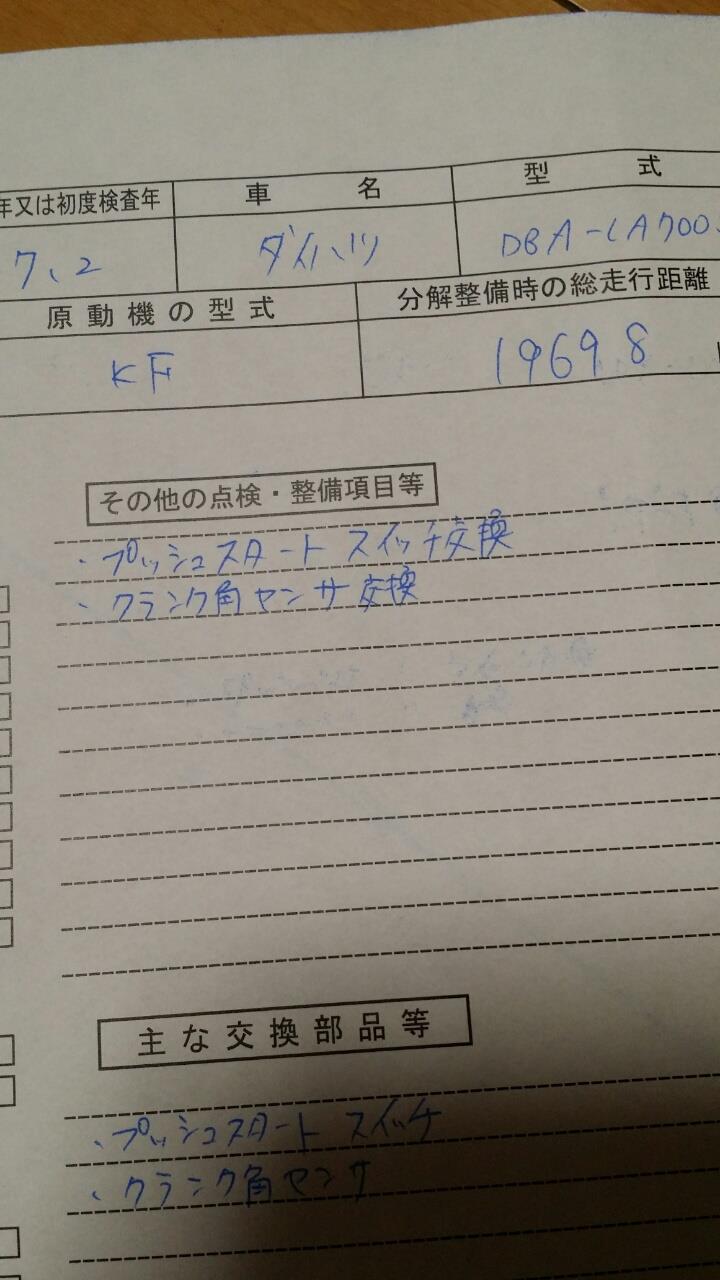 年又は初度検査年 車名 型式
7、2 ダイハツ DBA-LA700
原動機の型式 分解整備時の総走行距離
KF 19698
その他の点検・整備項目等
・プッシュスタートスイッチ交換
・クランク角センサ交換
主な交換部品等
・プッシュスタートスイッチ
・クランク角センサ